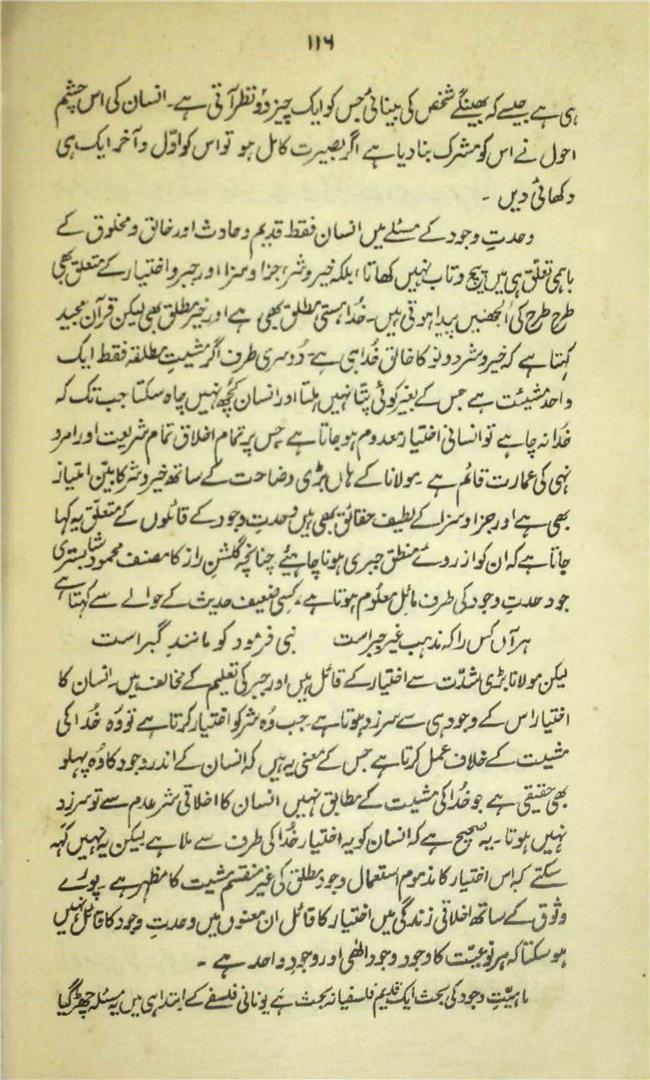 ۱۱۶
ہی ہے جیسے کہ بھینگے شخص کی بینائی جس کو ایک چیز دو نظر آتی ہے۔ انسان کی اس چشم
احول نے اس کو مشرک بنا دیا ہے اگر بصیرت کامل ہو تو اس کو اوّل و آخر ایک ہی
دکھائی دیں ۔
وحدتِ وجود کے مسئلے میں انسان فقط قدیم و حادث اور خالق و مخلوق کے
باہمی تعلق ہی میں پیچ و تاب نہیں کھاتا، بلکہ خیر و شر، جزا و سزا، اور جبر و اختیار کے متعلق بھی
طرح طرح کی اُلجھنیں پیدا ہوتی ہیں۔ خُدا ہستی مطلق بھی ہے اور خیر مطلق بھی لیکن قرآن مجید
کہتا ہے کہ خیر و شر دونو کا خالق خُدا ہی ہے۔ دُوسری طرف اگر مشیتِ مطلقہ فقط ایک
واحد مشیئت ہے جس کے بغیر کوئی پتّا نہیں ہلتا اور انسان کُچھ نہیں چاہ سکتا جب تک کہ
خُدا نہ چاہے تو انسانی اختیار معدوم ہو جاتا ہے جس پر تمام اخلاق تمام شریعت اور امر و
نہی کی عمارت قائم ہے ۔ مولانا کے ہاں بڑی وضاحت کے ساتھ خیر و شر کا بیّن امتیاز
بھی ہے اور جزا و سزا کے لطیف حقائق بھی ہیں وحدتِ وجود کے قائلوں کے متعلق یہ کہا
جاتا ہے کہ ان کو از روئے منطق جبری ہونا چاہیئے چنانچہ گلشنِ راز کا مصنف محمود شابستری
جو وحدتِ وجود کی طرف مائل معلُوم ہوتا ہے۔ کسی ضعیف حدیث کے حوالے سے کُہتا ہے
ہر آں کس را کہ مذہب غیر جبر است نبی فرمود کو مانندِ گبر است
لیکن مولانا بڑی شدّت سے اختیار کے قائل ہیں اور جبر کی تعلیم کے مخالف ہیں۔ انسان کا
اختیار اس کے وجود ہی سے سرزد ہوتا ہے جب وُہ شر کو اختیار کرتا ہے تو وُہ خُدا کی
مشیت کے خلاف عمل کرتا ہے جس کے معنی یہ ہیں کہ انسان کے اندر وجود کا وُہ پہلو
بھی حقیقی ہے جو خُدا کی مشیت کے مطابق نہیں انسان کا اخلاقی شر عدم سے تو سرزد
نہیں ہوتا۔ یہ صحیح ہے کہ انسان کو یہ اختیار خُدا کی طرف سے ملا ہے لیکن یہ نہیں کہہ
سکتے کہ اس اختیار کا مذموم استعمال وجود مطلق کی غیر منقسم مشیت کا مظہر ہے۔ پورے
وثوق کے ساتھ اخلاقی زندگی میں اختیار کا قائل ان معنوں میں وحدتِ وجود کا قائل نہیں
ہو سکتا کہ ہر نوعیّت کا وجود وجود الٰھی اور وجودِ واحد ہے ۔
ماہیّتِ وجود کی بحث ایک قدیم فلسفیانہ بحث ہے یونانی فلسفے کے ابتدا ہی میں یہ مسئلہ چھڑ گیا